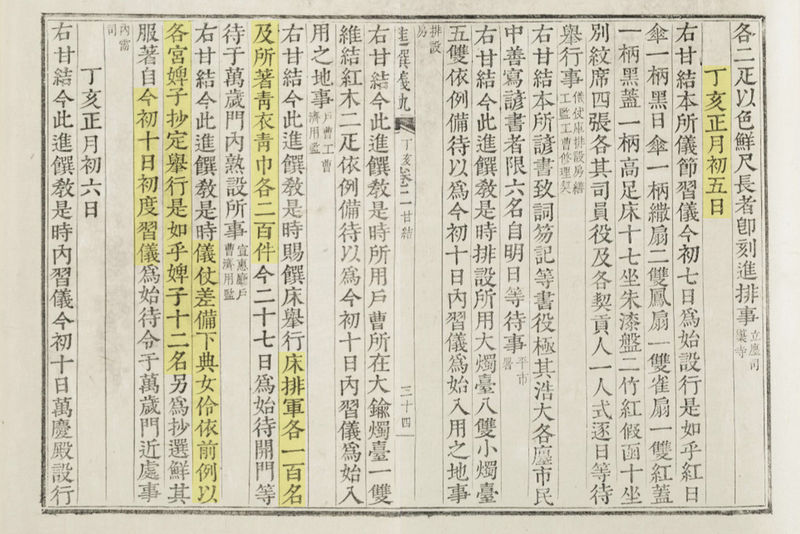 各二疋以色鮮尺長者卽刻進排事 立廛司䆃寺
丁亥正月初五日
右甘結本所儀節習儀今初七日爲始設行是如乎紅日
傘一柄黑日傘一柄繖扇二雙鳳扇一雙雀扇一雙紅蓋
一柄黑蓋一柄高足床十七坐朱漆盤二竹紅假函十坐
別紋席四張各其司員役及各契貢人一人式逐日等待
擧行事 儀仗庫排設房繕工監工曹修理契
右甘結本所諺書致詞笏記等書役極其浩大各廛市民
中善寫諺書者限六名自明日等待事 平市署
右甘結今此進饌敎是時排設所用大燭臺八雙小燭臺
五雙依例備待以爲今初十日內習儀爲始入用之地事
排設房
進饌儀軌 丁亥 卷二 甘結 三十四
右甘結今此進饌敎是時所用戶曹所在大鍮燭臺一雙
維結紅木二疋依例備待以爲今初十日內習儀爲始入
用之地事 戶曹工曹濟用監
右甘結今此進饌敎是時賜饌床擧行床排軍各一百名
及所著靑衣靑巾各二百件今二十七日爲始待開門等
待于萬歲門內熟設所事 宣惠廳戶曹濟用監
右甘結今此進饌敎是時儀仗差備下典女伶依前例以
各宮婢子抄定擧行是如乎婢子十二名另爲抄選鮮其
服著自今初十日初度習儀爲始待令于萬歲門近處事
內需司
丁亥正月初六日
右甘結今此進饌敎是時內習儀今初十日萬慶殿設行